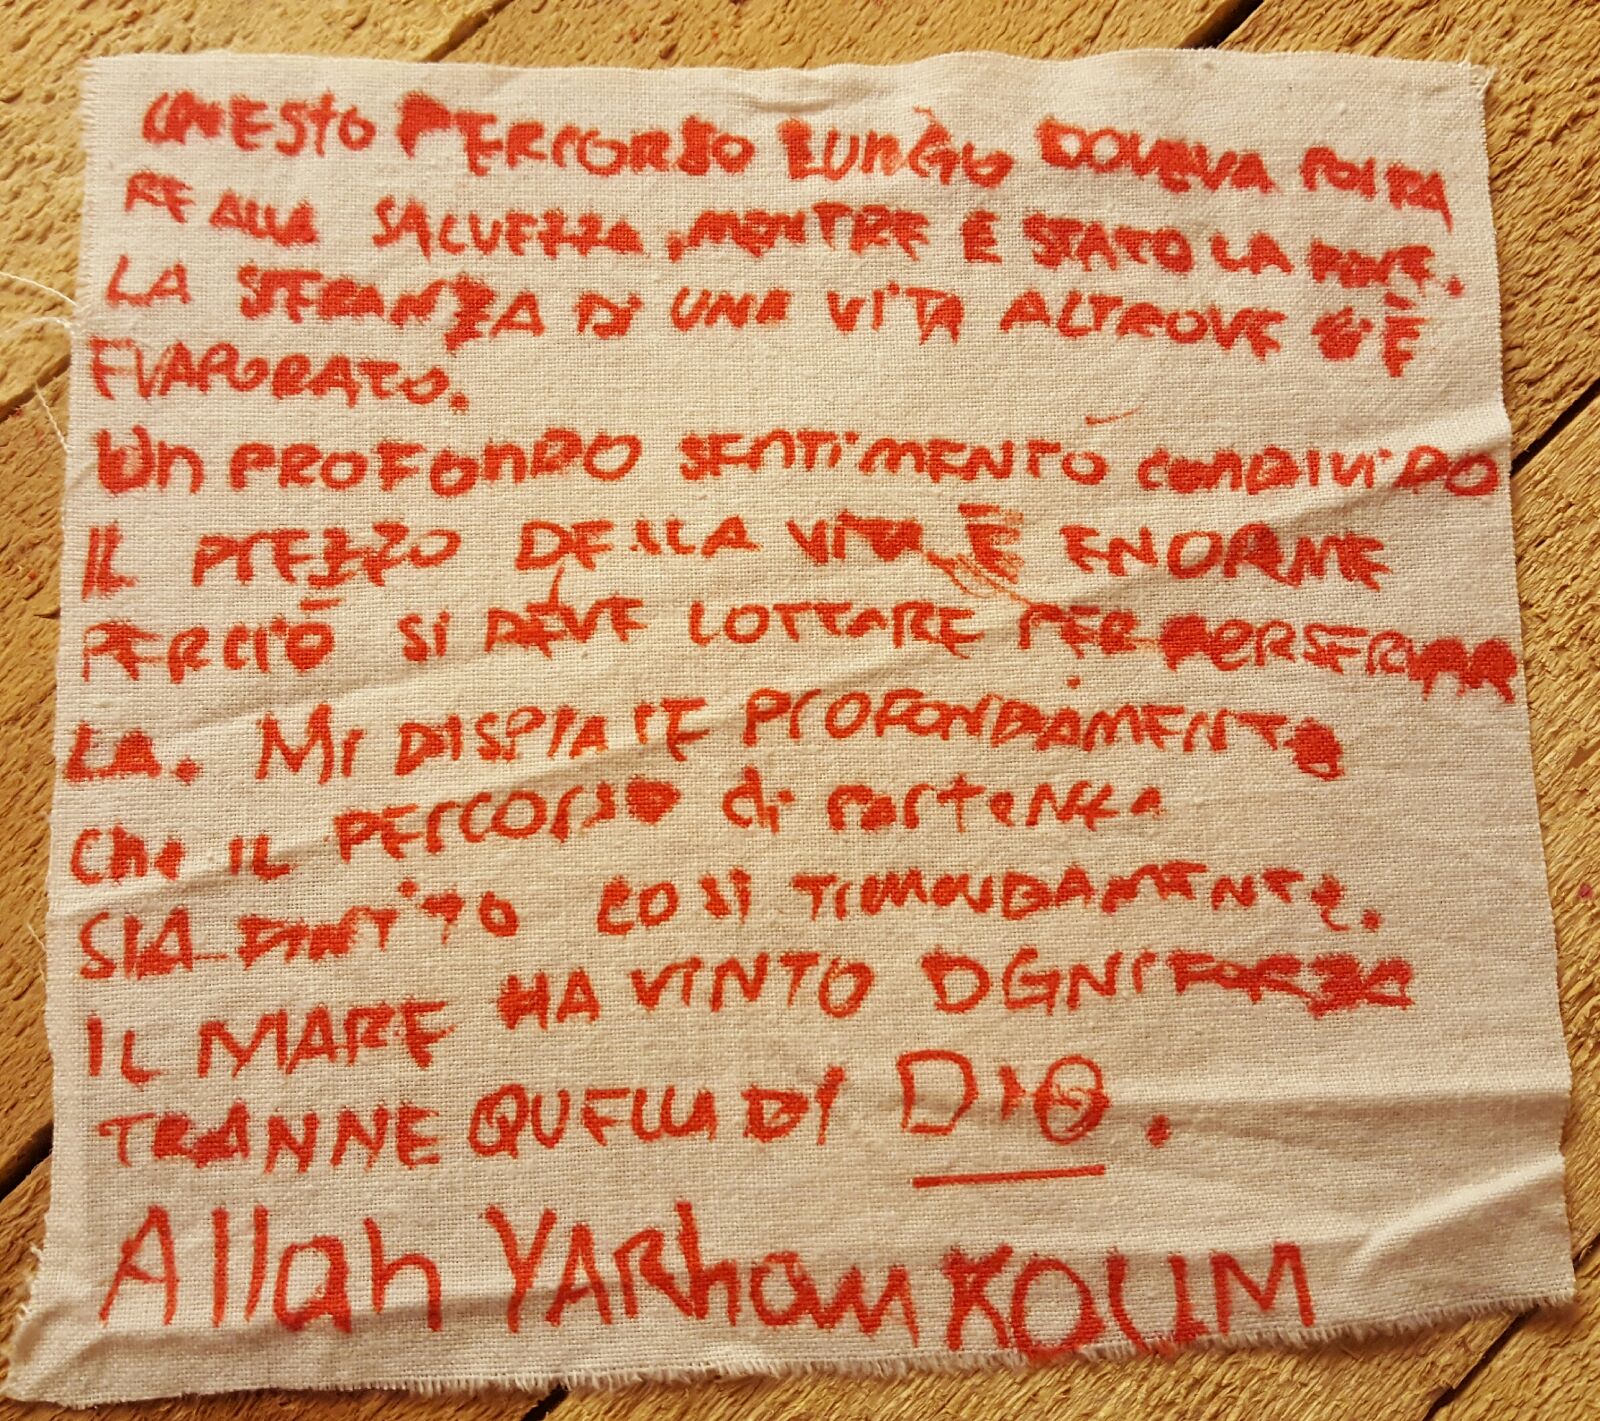 QUESTO PERCORSO LUNGO DOVEVA PORTA
RE ALLA SALVEZZA, MENTRE E STATO LA FINE.
LA SPERANZA DI UNA VITA ALTROVE S'È
EVAPORATO.
UN PROFONDO SENTIMENTO CONDIVIDO
IL PREZZO DELLA VITA È ENORME
PERCIÒ SI DEVE LOTTARE PER PERSERVAR
LA. MI DISPIACE PROFONDAMENTE
che IL PERCORSO di PartENZa
SIA FINITO COSI
IL MARE HA VINTO OGNI FORZA
TRANNE QUELLA DI DIO.
Allah YARhamKOUM